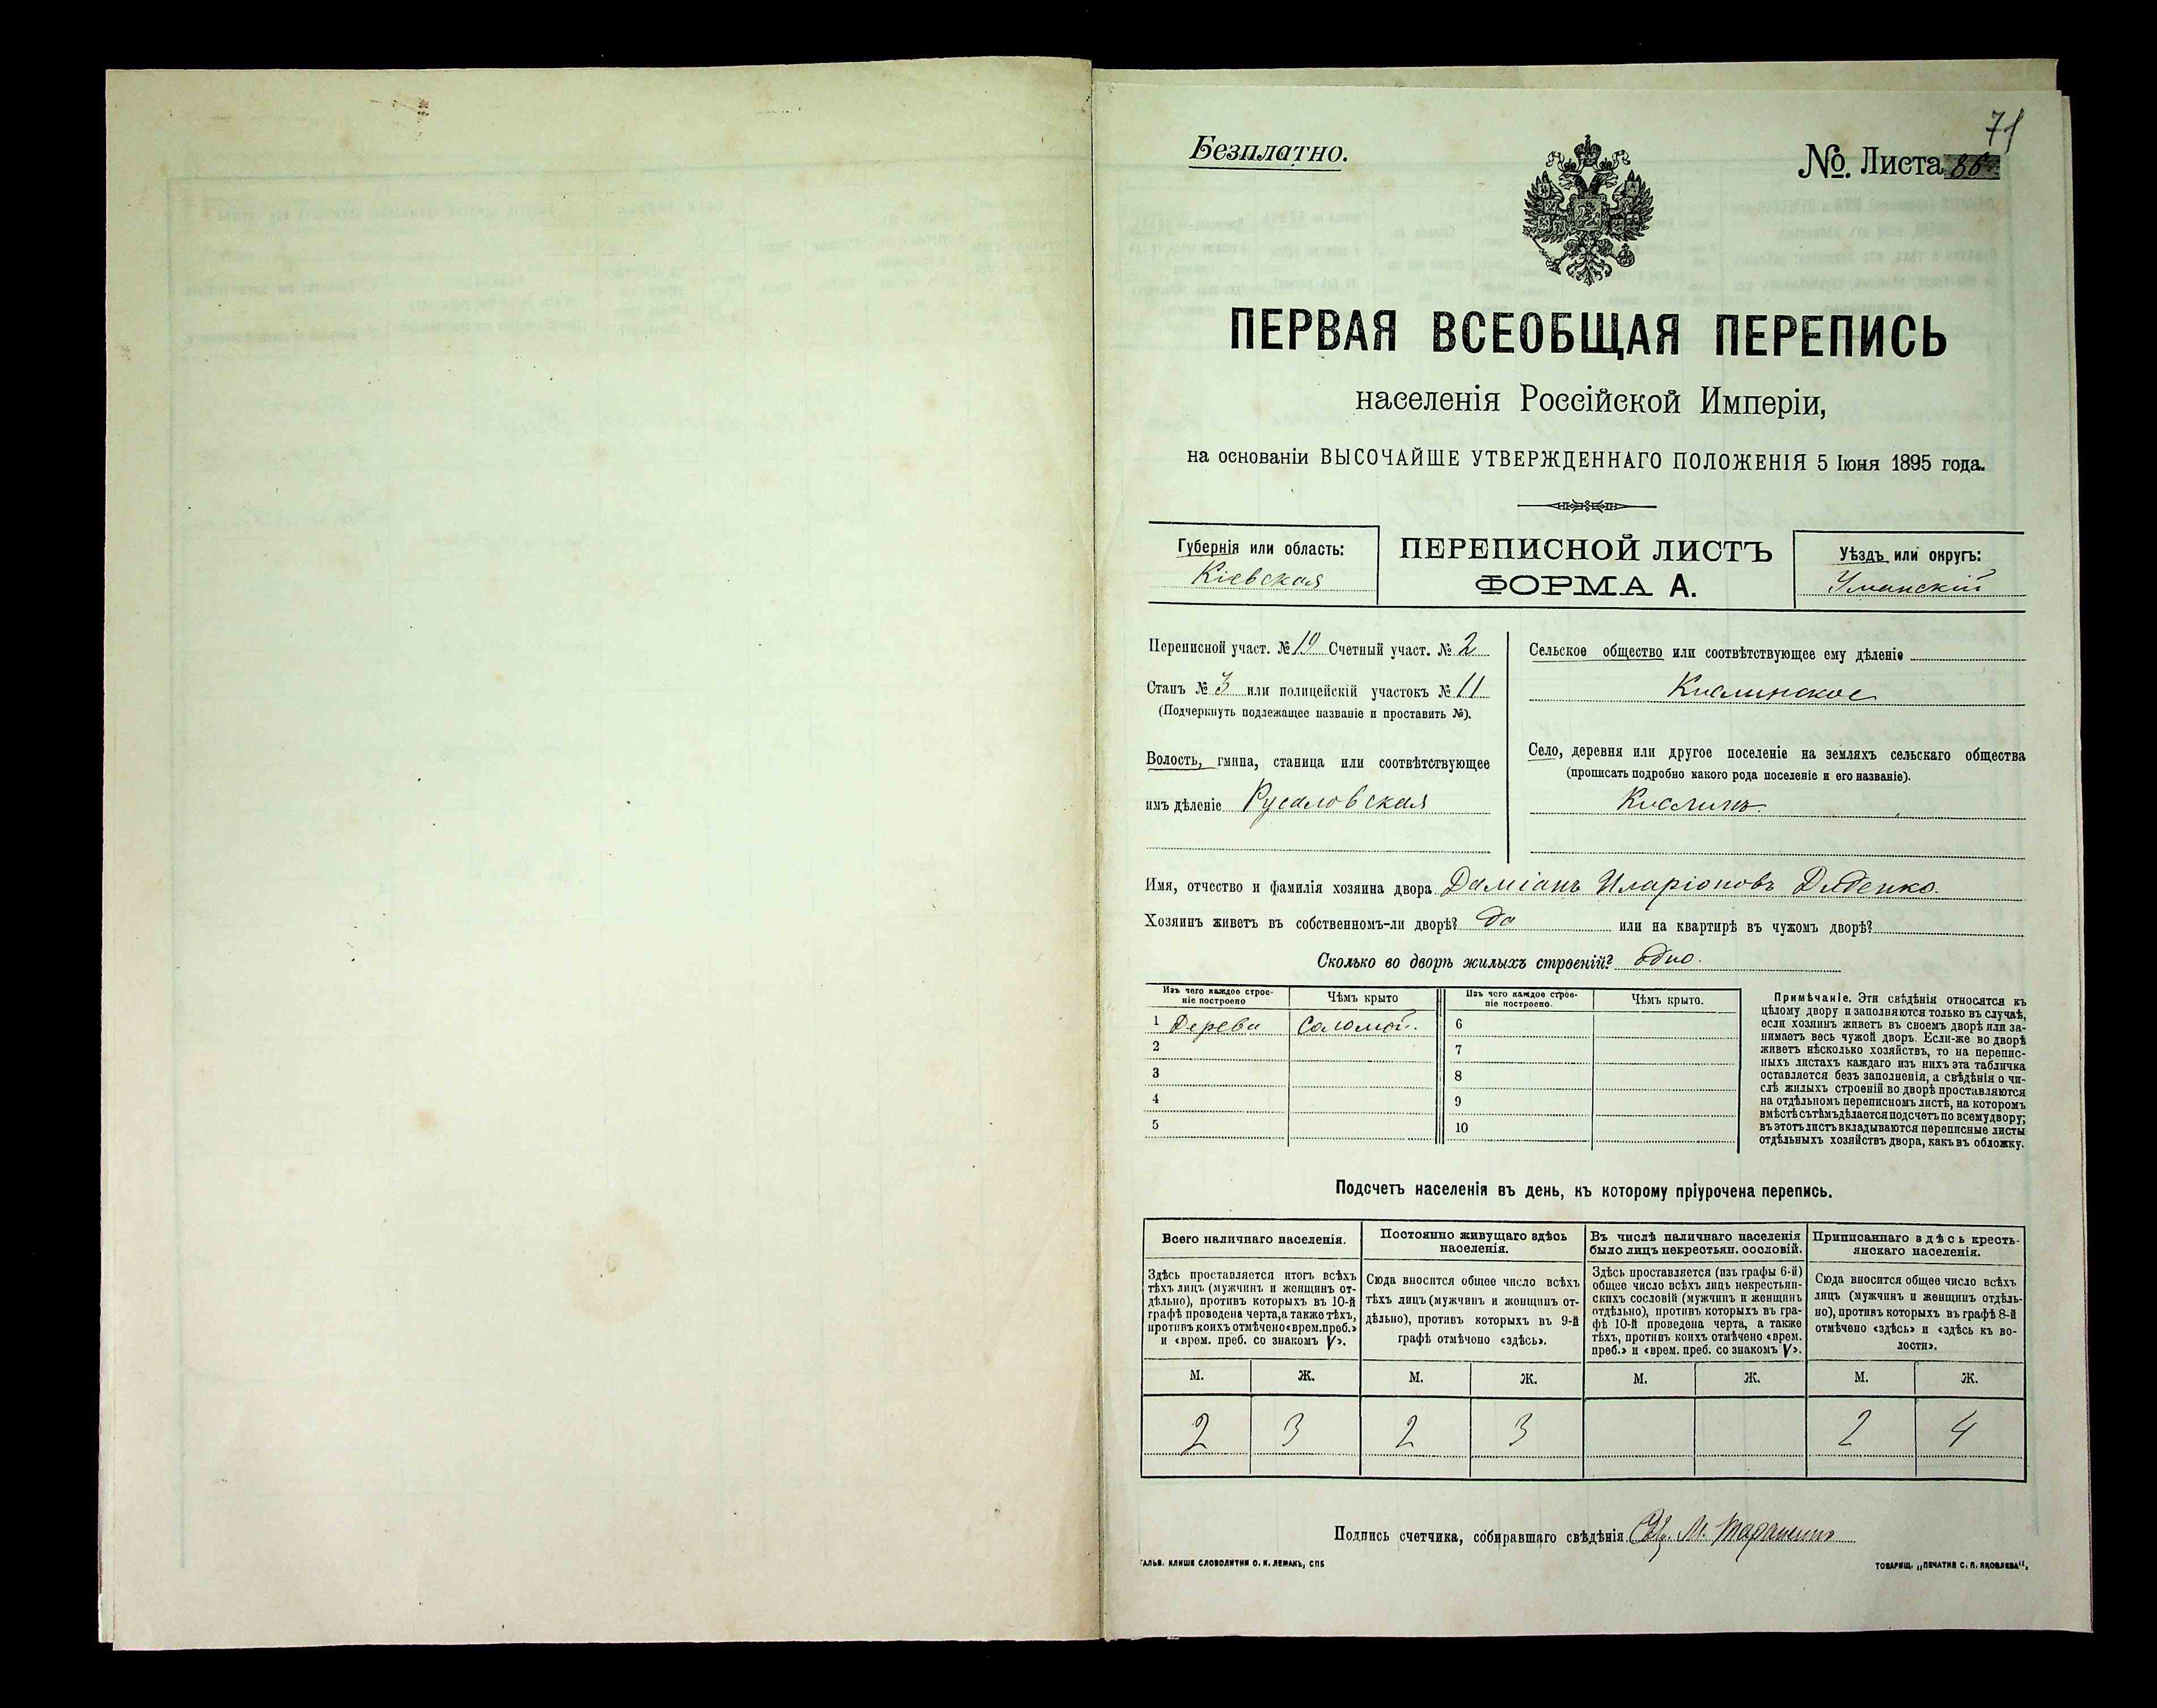 71
Безплатно.
№. Листа 86
ПЕРВАЯ ВСЕОБЩАЯ ПЕРЕПИСЬ
населенія Россійской Имперіи,
на основаніи ВЫСОЧАЙШЕ УТВЕРЖДЕННАГО ПОЛОЖЕНІЯ 5 Іюня 1895 года.
Губернія или область:
Кіевская
ПЕРЕПИСНОЙ ЛИСТЪ
ФОРМА А.
Уѣздъ или округъ:
Уманскій
Переписной участ. № 19 Счетный участ. № 2
Станъ № 3 или полицейскій участокъ № 11
(Подчеркнуть подлежащее названіе и проставить №).
Волость, гмина, станица или соотвѣтствующее
имъ дѣленіе Русаловская
Сельское общество или соотвѣтствующее ему дѣленіе
Кислинское
Село, деревня или другое поселеніе на земляхъ сельскаго общества
(прописать подробно какого рода поселеніе и его названіе).
Кислинъ.
Имя, отчество и фамилія хозяина двора Даміанъ Иларіоновъ Дяденко.
Хозяинъ живетъ въ собственномъ-ли дворѣ? да или на квартирѣ въ чужомъ дворѣ?
Сколько во дворѣ жилыхъ строеній? одно.
Изъ чего каждое строе-
ніе построено
Чѣмъ крыто
Изъ чего каждое строе-
ніе построено.
Чѣмъ крыто.
1 Дерева Соломой. 6
2 7
3 8
4 9
5 10
Примѣчаніе. Эти свѣдѣнія относятся къ
цѣлому двору и заполняются только въ случаѣ,
если хозяинъ живетъ въ своемъ дворѣ или за-
нимаетъ весь чужой дворъ. Если-же во дворѣ
живетъ нѣсколько хозяйствъ, то на перепис-
ныхъ листахъ каждаго изъ нихъ эта табличка
оставляется безъ заполненія, а свѣдѣнія о чи-
слѣ жилыхъ строеній во дворѣ проставляются
на отдѣльномъ переписномъ листѣ, на которомъ
вмѣстѣ съ тѣмъ дѣлается подсчетъ по всему двору;
въ этотъ листъ вкладываются переписные листы
отдѣльныхъ хозяйствъ двора, какъ въ обложку.
Подсчетъ населенія въ день, къ которому пріурочена перепись.
Всего наличнаго населенія.
Здѣсь проставляется итогъ всѣхъ
тѣхъ лицъ (мужчинъ и женщинъ от-
дѣльно), противъ которыхъ въ 10-й
графѣ проведена черта, а также тѣхъ,
противъ коихъ отмѣчено «врем. преб.»
и «врем. преб. со знакомъ V».
Постоянно живущаго здѣсь
населенія.
Сюда вносится общее число всѣхъ
тѣхъ лицъ (мужчинъ и женщинъ от-
дѣльно), противъ которыхъ въ 9-й
графѣ отмѣчено «здѣсь».
Въ числѣ наличнаго населенія
было лицъ некрестьян. сословій.
Здѣсь проставляется (изъ графы 6-й)
общее число всѣхъ лицъ некрестьян-
скихъ сословій (мужчинъ и женщинъ
отдѣльно), противъ которыхъ въ гра-
фѣ 10-й проведена черта, а также
тѣхъ, противъ коихъ отмѣчено «врем.
преб.» и «врем. преб. со знакомъ V».
Приписаннаго здѣсь кресть-
янскаго населенія.
Сюда вносится общее число всѣхъ
лицъ (мужчинъ и женщинъ отдѣль-
но), противъ которыхъ въ графѣ 8-й
отмѣчено «здѣсь» и «здѣсь къ во-
лости».
М. Ж. М. Ж. М. Ж. М. Ж.
2 3 2 3 2 4
Подпись счетчика, собиравшаго свѣдѣнія
ГАЛЬВ. КЛИШЕ СЛОВОЛИТНИ О. И. ЛЕМАНЪ, СПБ
ТОВАРИЩ. „ПЕЧАТНЯ С. П. ЯКОВЛЕВА“.